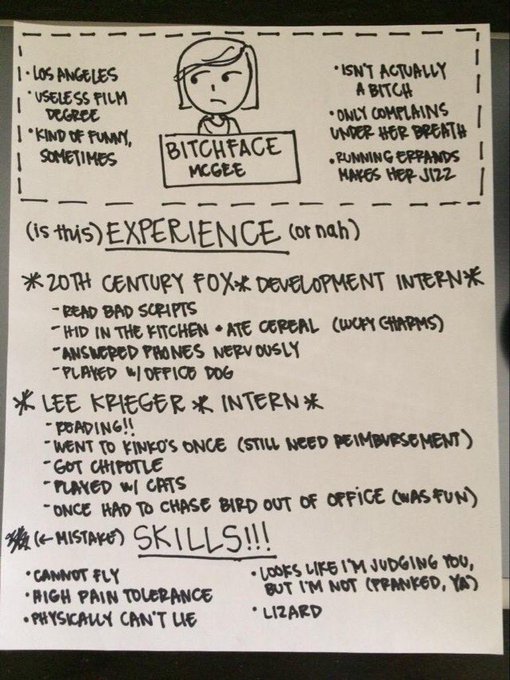 • LOS ANGELES
• USELESS FILM
DEGREE
• KIND OF FUNNY,
SOMETIMES
BITCHFACE
MCGEE
• ISN'T ACTUALLY
A BITCH
• ONLY COMPLAINS
UNDER HER BREATH
• RUNNING ERRANDS
MAKES HER JIZZ
(is this) EXPERIENCE (or nah)
* 20TH CENTURY FOX * DEVELOPMENT INTERN *
- READ BAD SCRIPTS
- HID IN THE KITCHEN + ATE CEREAL (LUCKY CHARMS)
- ANSWERED PHONES NERVOUSLY
- PLAYED W/ OFFICE DOG
* LEE KRIEGER * INTERN *
- READING!!
- WENT TO KINKO'S ONCE (STILL NEED REIMBURSEMENT)
- GOT CHIPOTLE
- PLAYED W/ CATS
- ONCE HAD TO CHASE BIRD OUT OF OFFICE (WAS FUN)
(← MISTAKE) SKILLS!!!
• CANNOT FLY
• HIGH PAIN TOLERANCE
• PHYSICALLY CAN'T LIE
• LOOKS LIKE I'M JUDGING YOU,
BUT I'M NOT (PRANKED, YA)
• LIZARD